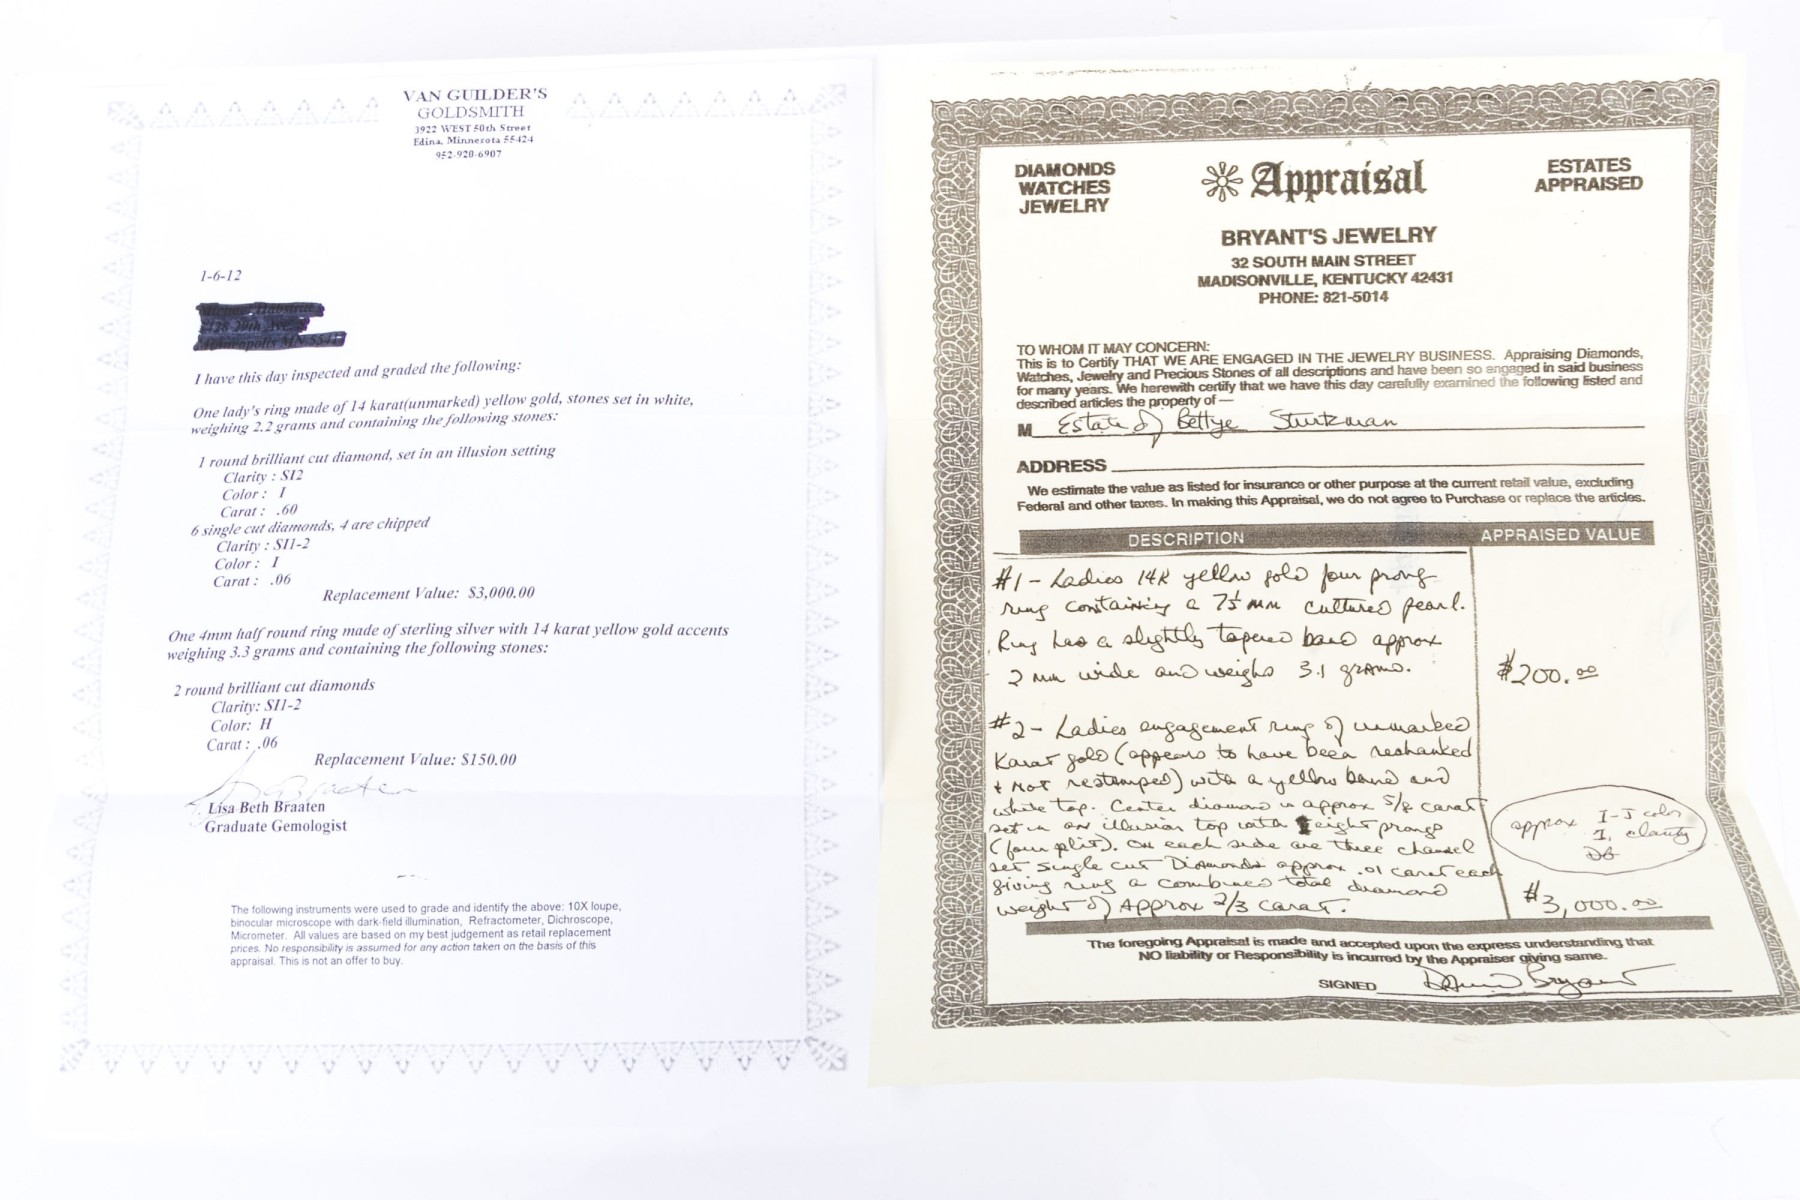 VAN GUILDER'S
GOLDSMITH
3922 WEST 50th Street
Edina, Minnesota 55424
952-920-6907
1-6-12
I have this day inspected and graded the following:
One lady's ring made of 14 karat(unmarked) yellow gold, stones set in white,
weighing 2.2 grams and containing the following stones:
1 round brilliant cut diamond, set in an illusion setting
Clarity : SI2
Color : I
Carat : .60
6 single cut diamonds, 4 are chipped
Clarity : SI1-2
Color : I
Carat : .06
Replacement Value: $3,000.00
One 4mm half round ring made of sterling silver with 14 karat yellow gold accents
weighing 3.3 grams and containing the following stones:
2 round brilliant cut diamonds
Clarity: SI1-2
Color: H
Carat : .06
Replacement Value: $150.00
Lisa Beth Braaten
Graduate Gemologist
The following instruments were used to grade and identify the above: 10X loupe,
binocular microscope with dark-field illumination, Refractometer, Dichroscope,
Micrometer. All values are based on my best judgement as retail replacement
prices. No responsibility is assumed for any action taken on the basis of this
appraisal. This is not an offer to buy.
DIAMONDS
WATCHES
JEWELRY
Appraisal
ESTATES
APPRAISED
BRYANT'S JEWELRY
32 SOUTH MAIN STREET
MADISONVILLE, KENTUCKY 42431
PHONE: 821-5014
TO WHOM IT MAY CONCERN:
This is to Certify THAT WE ARE ENGAGED IN THE JEWELRY BUSINESS. Appraising Diamonds,
Watches, Jewelry and Precious Stones of all descriptions and have been so engaged in said business
for many years. We herewith certify that we have this day carefully examined the following listed and
described articles the property of —
M Estate of Bettye Sturkman
ADDRESS
We estimate the value as listed for insurance or other purpose at the current retail value, excluding
Federal and other taxes. In making this Appraisal, we do not agree to Purchase or replace the articles.
DESCRIPTION APPRAISED VALUE
#1 - Ladies 14K yellow gold four prong
ring containing a 7½ mm cultured pearl.
Ring has a slightly tapered band approx
2 mm wide and weighs 3.1 grams.
$200.00
#2 - Ladies engagement ring of unmarked
Karat gold (appears to have been reshanked
+ not restamped) with a yellow band and
white top. Center diamond is approx 5/8 carat
set in an illusion top with eight prongs
(four split). On each side are three channel
set single cut Diamonds approx .01 carat each
giving ring a combined total diamond
weight of Approx 2/3 carat.
approx I-J color
I1 clarity
DB
$3,000.00
The foregoing Appraisal is made and accepted upon the express understanding that
NO liability or Responsibility is incurred by the Appraiser giving same.
SIGNED Bryant